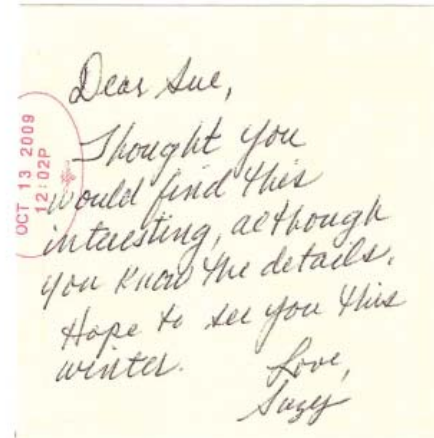 Dear Sue,
OCT 13 2009
12:02P
Thought you
would find this
interesting, although
you know the details.
Hope to see you this
winter.
Love,
Suzy